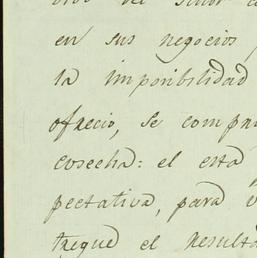 del Señor
en sus negocios
la imposibilidad
ofrecio, se comp
cosecha: el esta
pectativa, para
tregue el result